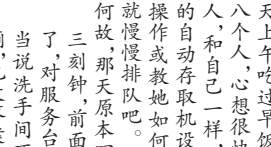 天上午吃过早饭
八个人，心想很快
人，和自己一样，
的自动存取机设
操作或教她如何
就慢慢排队吧。
何故，那天原本
三刻钟，前面
了，对服务台
当说洗手间